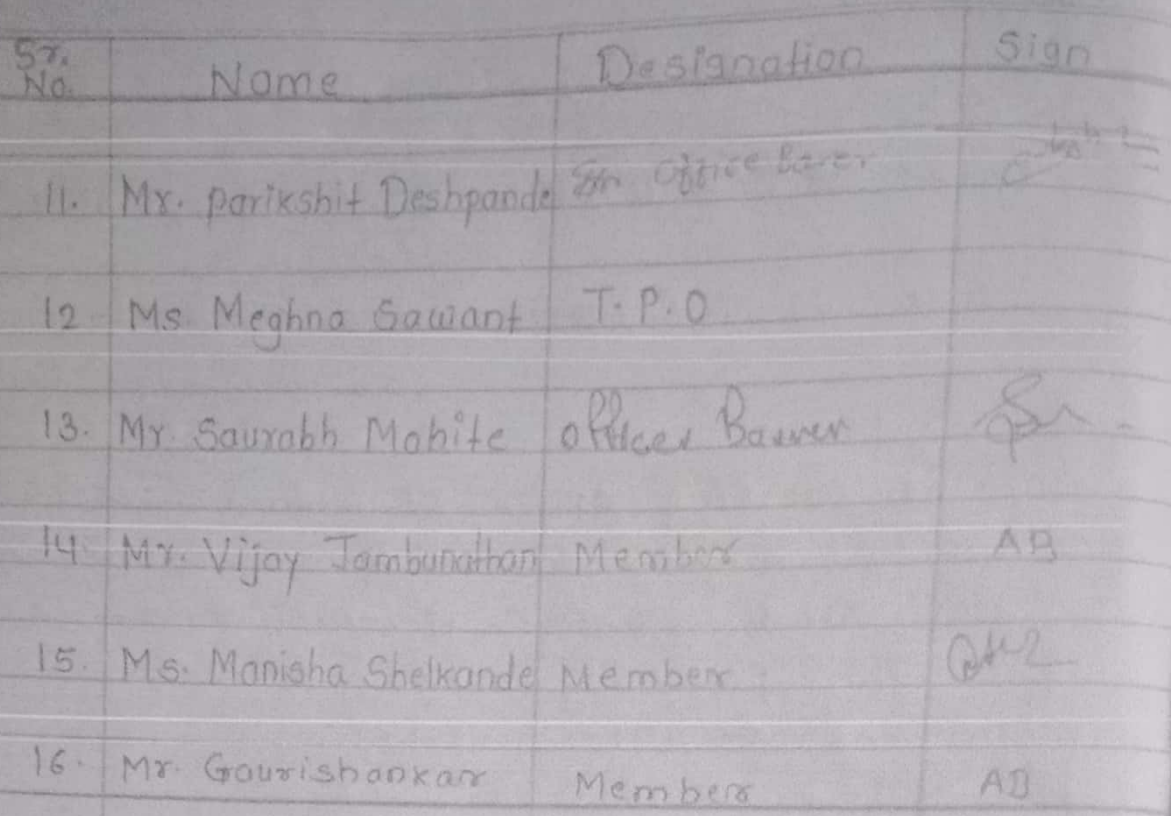 Sr. No. Name Designation Sign
11. Mr. Parikshit Deshpande Office Barer
12 Ms. Meghna Sawant T.P.O
13. Mr. Saurabh Mohite Officer Barrer
14 Mr. Vijay Jambunathan Member AB
15. Ms. Manisha Shelkande Member
16. Mr. Gourishankar Member AB